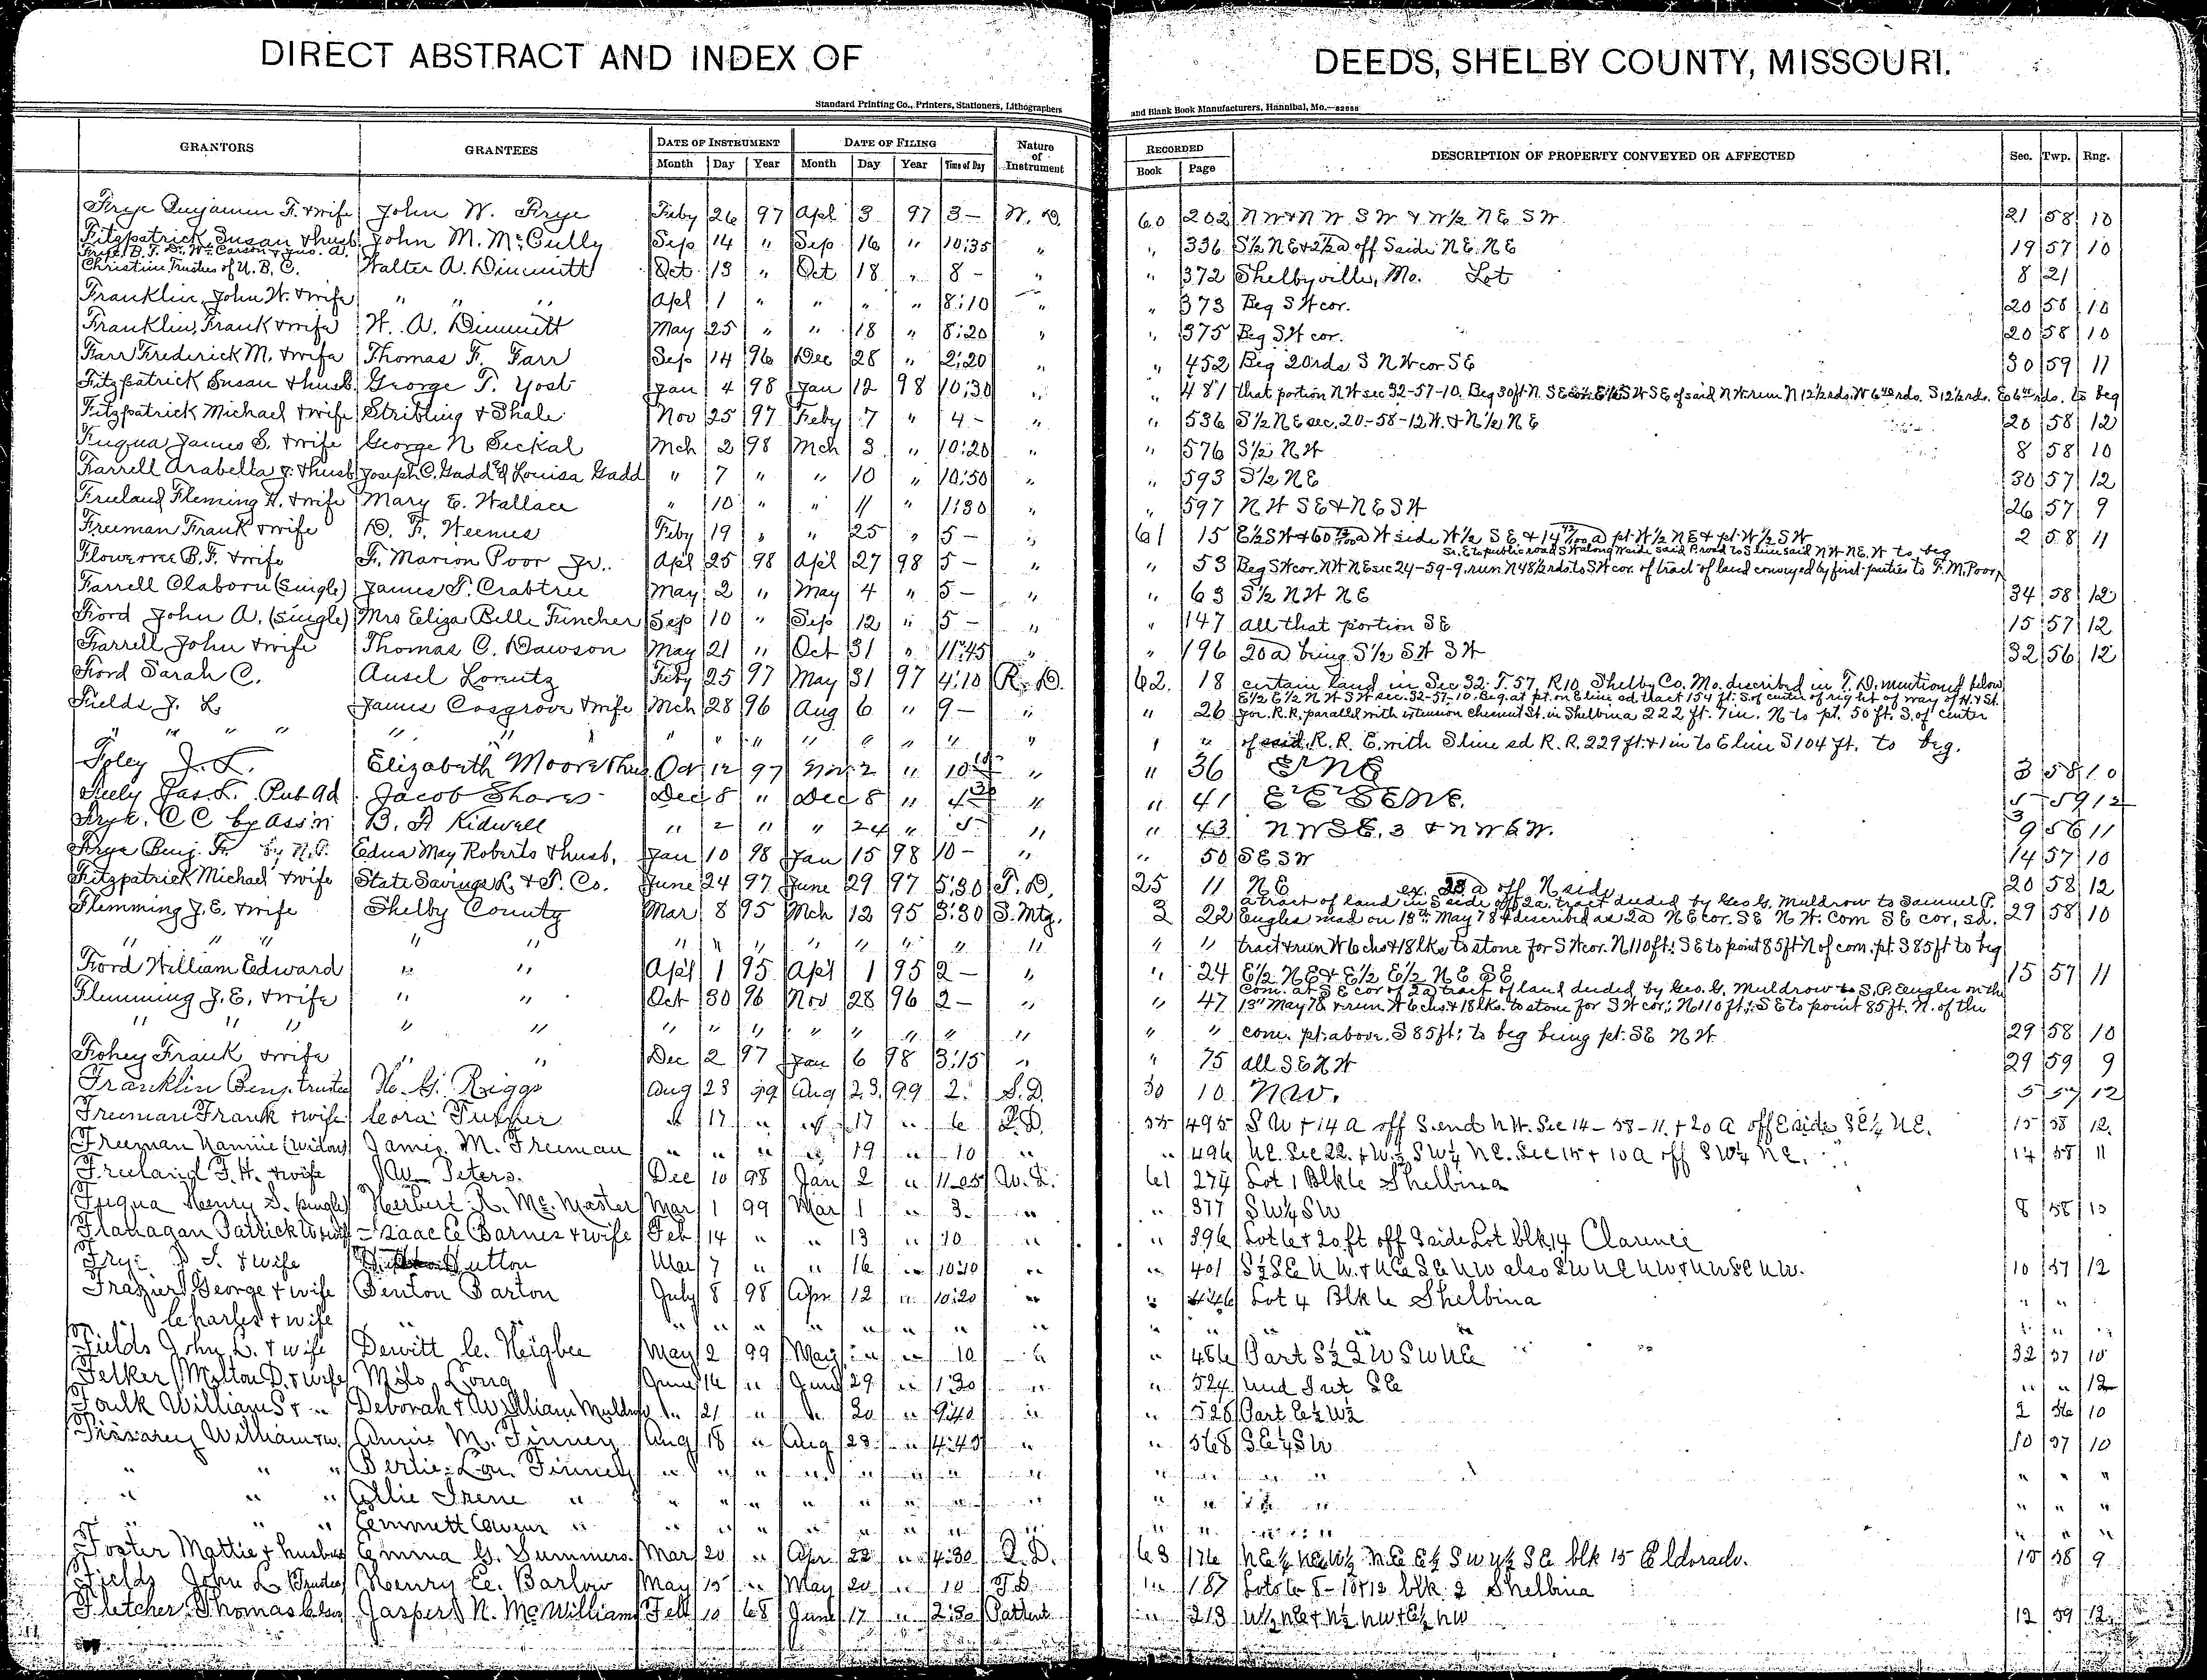 DIRECT ABSTRACT AND INDEX OF DEEDS, SHELBY COUNTY, MISSOURI.
Standard Printing Co., Printers, Stationers, Lithographers and Blank Book Manufacturers, Hannibal, Mo.
GRANTORS GRANTEES DATE OF INSTRUMENT DATE OF FILING Nature of Instrument RECORDED DESCRIPTION OF PROPERTY CONVEYED OR AFFECTED Sec. Twp. Rng.
Month Day Year Month Day Year Time of Day Book Page
Frye Benjamin F. & wife John W. Frye Feby 26 97 Apl 3 97 3- W. D. 60 202 NW & NW SW & W½ NE SW 21 58 10
Fitzpatrick, Susan & husb John M. McCully Sep 14 " Sep 16 " 10:35 " " 336 S½ NE & 2½a off S side NE NE 19 57 10
Frye, B. F. D. W. Carson & Jno. A.
Christine Trustees of U. B. C. Walter A. Dimmitt Oct 13 " Oct 18 " 8 - " " 372 Shelbyville, Mo. Lot 8 21
Franklin, John W. & wife " " " Apl 1 " " " " 8:10 " " 373 Beg SW cor. 20 58 10
Franklin, Frank & wife W. A. Dimmitt May 25 " " 18 " 8:20 " " 375 Beg SW cor. 20 58 10
Farr Frederick M. & wife Thomas F. Farr Sep 14 96 Dec 28 " 2:20 " " 452 Beg 20rds S NW cor SE 30 59 11
Fitzpatrick Susan & husb. George T. Yost Jan 4 98 Jan 12 98 10:30 " " 481 that portion NW sec 32-57-10. Beg 30ft N. SE cor E½ SW SE of said NW run N 12½rds. W 6 rds. S 12½rds. E 6 rds. to beg
Fitzpatrick Michael & wife Stribling & Shale Nov 25 97 Feby 7 " 4 - " " 536 S½ NE sec. 20-58-12 W. & N½ NE 20 58 12
Fuqua James S. & wife George N Seckal Mch 2 98 Mch 3 " 10:20 " " 576 S½ NW 8 58 10
Farrell Arabella J. & husb Joseph C. Gadd & Louisa Gadd " 7 " " 10 " 10:50 " " 593 S½ NE 30 57 12
Freeland Fleming H. & wife Mary E. Wallace " 10 " " 11 " 1:30 " " 597 NW SE & NE SW 26 57 9
Freeman Frank & wife D. F. Weemes Feby 19 " " 25 " 5 - " 61 15 E½ SW & 60 a W side W½ SE & 14 a pt. W½ NE & pt. W½ SW 2 58 11
SE to public road SW along W side said P. road to S line said NW NE. W to beg
Flowerree B. F. & wife F. Marion Poor Jr. Apl 25 98 Apl 27 98 5 - " " 53 Beg SW cor. NW NE sec 24-59-9. run N 48½ rds. to SW cor. of tract of land conveyed by first parties to F. M. Poor,
Farrell Claborn (single) James T. Crabtree May 2 " May 4 " 5 - " " 63 S½ NW NE 34 58 12
Ford John A. (single) Mrs Eliza Belle Fincher Sep 10 " Sep 12 " 5 - " " 147 all that portion SE 15 57 12
Farrell John & wife Thomas C. Dawson May 21 " Oct 31 " 11:45 " " 196 20a being S½ SW SW 32 56 12
Ford Sarah C. Ansel Lorentz Feby 25 97 May 31 97 4:10 R. D. 62 18 certain land in Sec 32. T. 57. R 10 Shelby Co. Mo. described in T. D. mentioned below
E½ E½ NW SW sec. 32-57-10. Beg. at pt. on E line sd. tract 154 ft. S of center of right of way of H. & St.
Fields J. L James Cosgrove & wife Mch 28 96 Aug 6 " 9 - " " 26 Joe. R.R. parallel with extension Chesnut St. in Shelbina 222 ft. 7in. N to pt. 50 ft. S. of center
" " " " " " " " " " " " " " of said R. R. E. with S line sd R. R. 229 ft. & 1 in to E line S 104 ft. to beg.
Foley J. L. Elizabeth Moore & hus Oct 12 97 Nov 2 " 10 " " 36 3 58 10
Feely Jas L. Pub ad Jacob Shores Dec 8 " Dec 8 " 4 " " 41 5 59 12
Frye. C C by Assn B. F Kidwell " 2 " " 24 " 5 " " 43 NW SE, 3 & NW SW. 9 56 11
Frye Benj. F. by N. P. Edna May Roberts & husb. Jan 10 98 Jan 15 98 10 - " " 50 SE SW 14 57 10
Fitzpatrick Michael & wife State Savings L. & T. Co. June 24 97 June 29 97 5:30 T. D. 25 11 NE ex. a off N side 20 58 12
a tract of land in S side off 2a. tract deeded by Geo G. Muldrow to Samuel P.
Flemming J. E. & wife Shelby County Mar 8 95 Mch 12 95 3:30 S. Mtg. 2 22 Eugles mad on 13th May 78 & described as 2a NE cor. SE NW: Com SE cor, sd. 29 58 10
" " " " " " " " " " " " " " " tract & run W 6 chs & 18 lks to stone for SW cor. N 110 ft: SE to point 85 ft N of com. pt. S 85 ft to beg
Ford William Edward " " Apl 1 95 Apl 1 95 2 - " " 24 E½ NE & E½ E½ NE SE 15 57 11
Com. at SE cor of 2a tract of land deeded by Geo. G. Muldrow to S. P. Eugles on the
Flemming J. E. & wife " " Oct 30 96 Nov 28 96 2 - " " 47 13th May 78 & run W 6 chs. & 18 lks. to stone for SW cor.; N 110 ft.; SE to point 85 ft. N. of the
" " " " " " " " " " " " " " " com. pt. above. S 85 ft; to beg being pt. SE NW 29 58 10
Fohey Frank & wife " " Dec 2 97 Jan 6 98 3:15 " " 75 all SE NW 29 59 9
Franklin Benj. trustee H. G. Riggs Aug 23 99 Aug 23 99 2. S. D. 30 10 NW. 5 57 12
Freeman Frank & wife Cora Tupper " 17 " " 17 " 6 Q. D. 55 495 SW & 14 A off S. end NW. Sec 14-58-11. & 20 A off E side SE¼ NE. 15 58 12.
Freeman Nannie (widow) James M. Freeman " " " " 19 " 10 " " 496 NE. Sec 22. & W½ SW¼ NE. Sec 15 & 10 a off SW¼ NE. 14 58 11
Freeland F. H. & wife J W Peters. Dec 10 98 Jan 2 " 11-05 W. D. 61 274 Lot 1 Blk 6 Shelbina
Fuqua Henry S. (single) Herbert R. McMaster Mar 1 99 Mar 1 " 3. " " 377 SW¼ SW 8 58 10
Flanagan Patrick & wife Isaac C Barnes & wife Feb 14 " " 13 " 10 " " 396 Lot 6 & 20 ft off S side Lot blk 14 Clarence
Frye B F. & wife Hutton Mar 7 " " 16 " 10:20 " " 401 S½ SE NW. & NE SE NW also SW NE NW & NW SE NW. 10 57 12
Frazier George & wife Benton Barton July 8 98 Apr 12 " 10:20 " " 446 Lot 4 Blk 6 Shelbina " "
" Charles & wife " " " " " " " " " " " " " " "
Fields John L. & wife Dewitt C. Higbee May 2 99 May " " 10 " " 486 Part S½ SW SW NE 32 57 10
Felker Milton D. & wife Milo Long June 16 " June 29 " 1:30 " " 524 Und Int SE " " 12
Foulk William S & " Deborah & William Muldrow " 21 " " 30 " 9:40 " " 528 Part E½ W½ 2 56 10
William & w. Annie M. Finney Aug 18 " Aug 23 " 4:45 " " 568 SE¼ SW 10 57 10
" " " Bertie Lou Finney " " " " " " " " " " " " " "
" " " Ollie Irene " " " " " " " " " " " " " " "
" " " Emmett Cowen " " " " " " " " " " " " " " "
Foster Mattie & husband Emma G. Summers. Mar 20 " Apr 22 " 4:30 Q. D. 63 176 blk 15 Eldorado. 15 58 9
Fields John L (Trustee) Henry C. Barlow May 15 " May 20 " 10 T D " 187 Lots 6-8-10 & 12 blk 2 Shelbina
Fletcher, Thomas Clem Jasper N. McWilliams Feb 10 68 June 17 " 2:30 Patent " 213 W½ NE & N½ NW & E½ NW 12 59 12